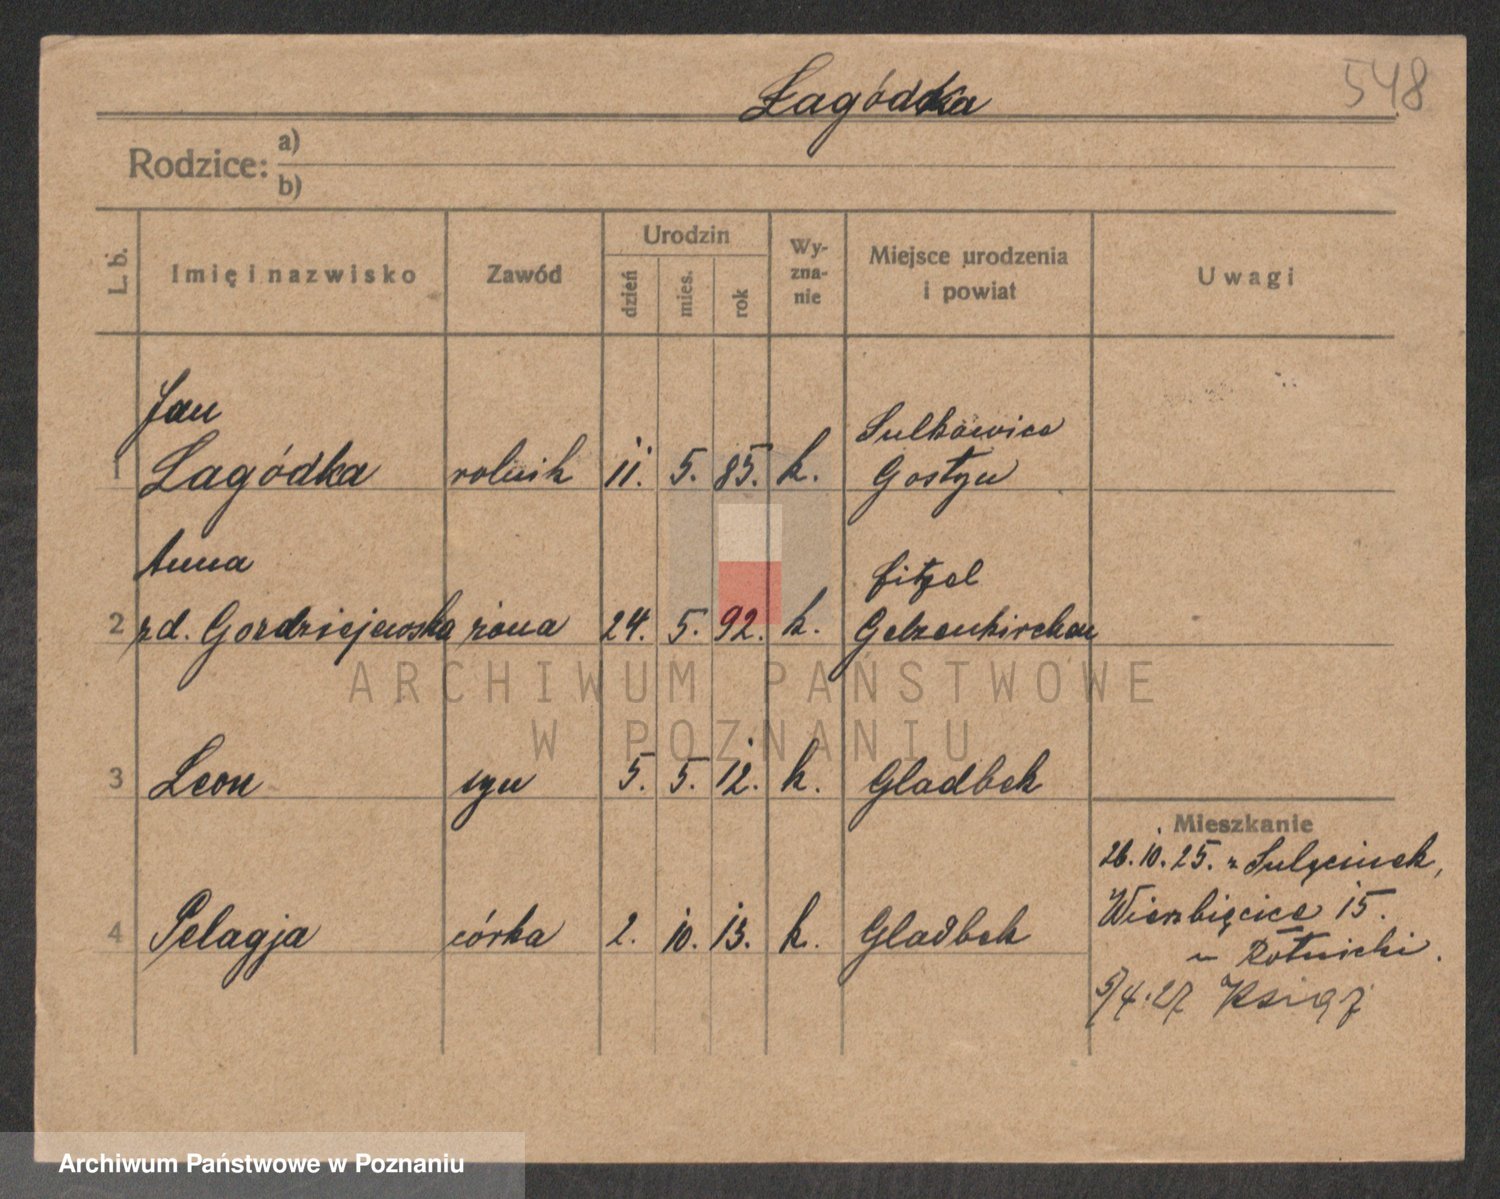 Łagódka
548
Rodzice:
a)
b)
L. b.
Imię i nazwisko
Zawód
Urodzin
dzień
mies.
rok
Wy-
zna-
nie
Miejsce urodzenia
i powiat
Uwagi
Jan
Sulkowice
1 Łagódka rolnik 11. 5. 85. k. Gostyn
Anna
2 zd. Gozdziejewska żona 24. 5. 92. k. Gelzenkirchen
3 Leon syn 5. 5. 12. k. Gladbek
4 Pelagja córka 2. 10. 13. k. Gladbek
Mieszkanie
26.10.25. z Sulęcinek,
Wierzbięcice 15.
u Rotnicki.
5/4.27 Książ
ARCHIWUM PAŃSTWOWE
W POZNANIU
Archiwum Państwowe w Poznaniu